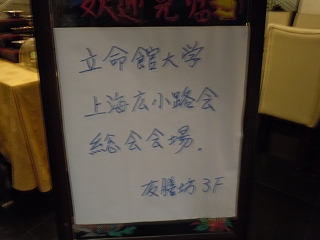 欢迎光临
立命館大学
上海広小路会
総会会場.
友膳坊 3F